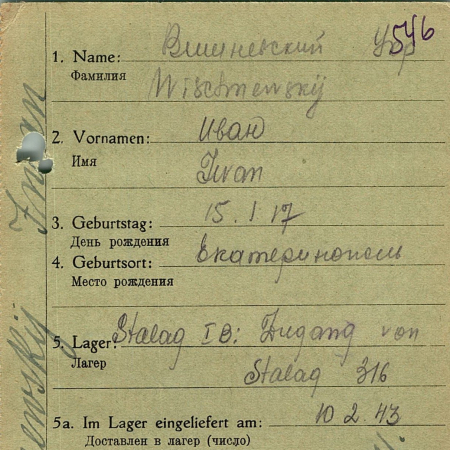 1. Name: Вишневский Укр 546
Фамилия
Wischnewskij
2. Vornamen: Иван
Имя
Iwan
3. Geburtstag: 15. I 17
День рождения
4. Geburtsort: Екатеринополь
Место рождения
5. Lager: Stalag I B: Zugang von
Лагер
Stalag 316
5a. Im Lager eingeliefert am: 10 2. 43
Доставлен в лагер (число)